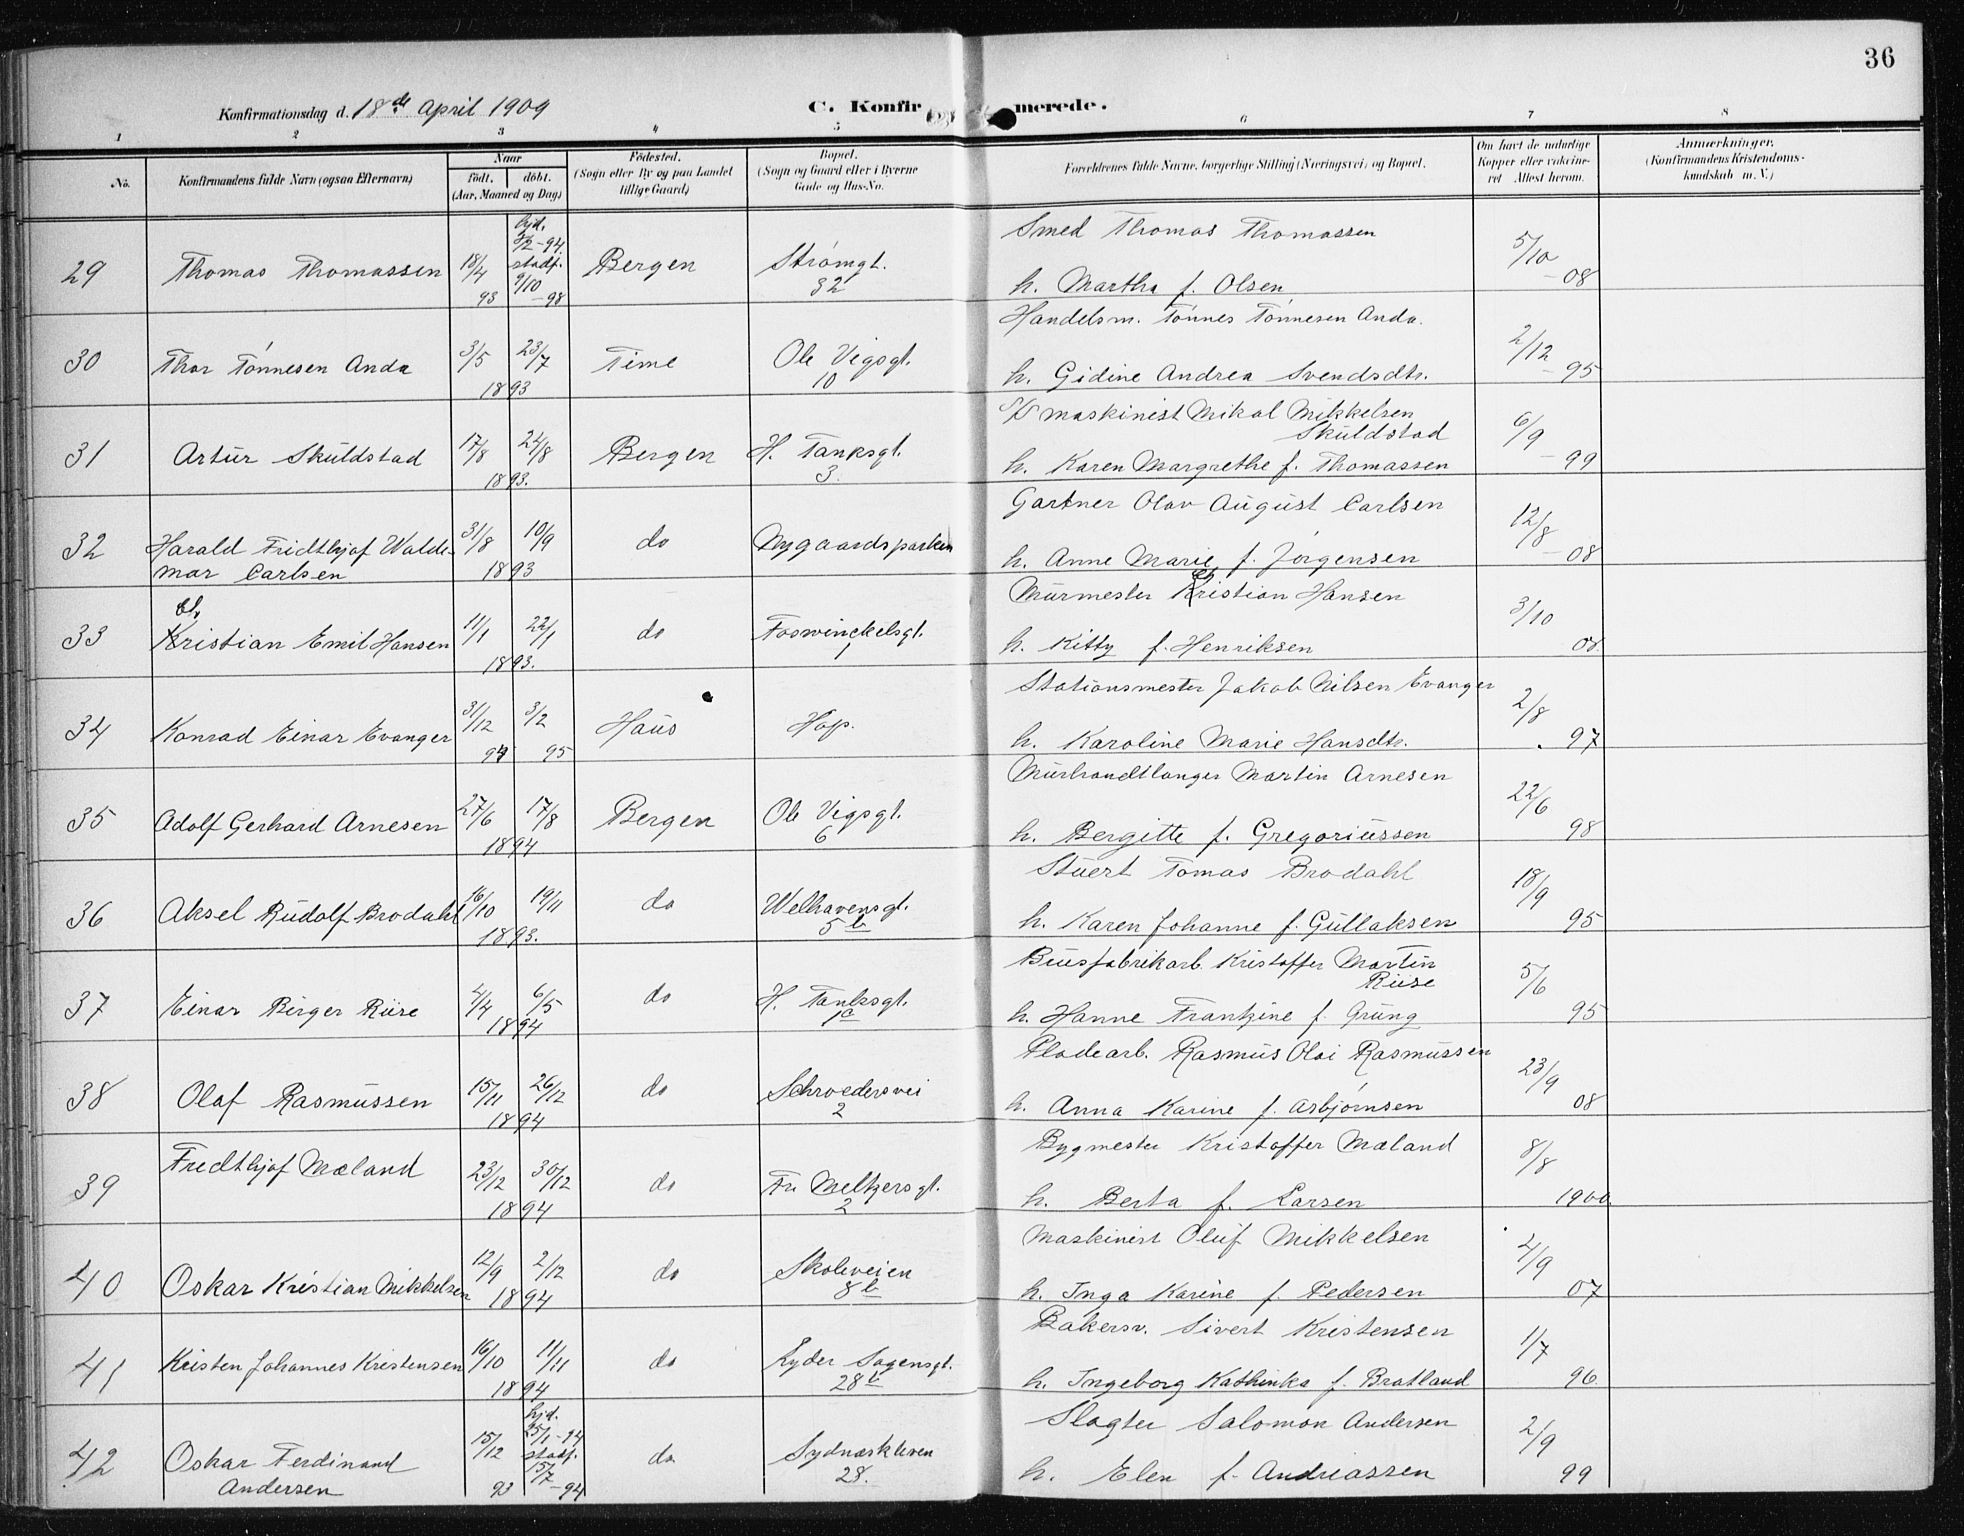 36
Konfirmationsdag d. 18de April 1909
C. Konfirmerede.
1 2 3 4 5 6 7 8
No.
Konfirmandens fulde Navn (ogsaa Efternavn)
Naar
födt. döbt.
(Aar, Maaned og Dag)
Födested.
(Sogn eller By og paa Landet
tillige Gaard)
Bopæl.
(Sogn og Gaard eller i Byerne
Gade og Hus-No.
Forældrenes fulde Navne, borgerlige Stilling (Næringsvei) og Bopæl.
Om havt de naturlige
Kopper eller vaksine-
ret Attest herom.
Anmærkninger.
(Konfirmandens Kristendoms-
kundskab m. V.)
29 Thomas Thomassen 18/4 93 hjd. 3/2-94 stadf. 9/10-98 Bergen Strømgt. 32
Smed Thomas Thomassen
h. Martha f. Olsen 5/10-08
30 Thor Tönnesen Anda 3/5 23/7 1893 Time Ole Vigsgt. 10
Handelsm. Tönnes Tönnesen Anda.
h. Gidine Andrea Svendsdtr. 2/12-95
31 Artur Skuldstad 17/8 24/8 1893. Bergen H. Tanksgt. 3.
S/S maskinist Mikal Mikkelsen
Skuldstad
h. Karen Margrethe f. Thomassen 6/9-99
32 Harald Fridthjof Walde-
mar Carlsen 31/8 10/9 1893 do Nygaardsparken
Gartner Olav August Carlsen
h. Anne Marie f. Jörgensen 12/8-08
33 Christian Emil Hansen 11/1 22/1 1893. do Foswinckelsgt. 1
Murmester Christian Hansen
h. Kitty f. Henriksen 3/10 08.
34 Konrad Einar Evanger 31/12 94 3/2 95 Haus Hop.
Stationsmester Jakob Nilsen Evanger
h. Karoline Marie Hansdtr. 2/8 97
35 Adolf Gerhard Arnesen 27/6 17/8 1894 Bergen Ole Vigsgt. 6
Murhandtlanger Martin Arnesen
h. Bergitte f. Gregoriussen 22/6 98
36 Aksel Rudolf Brodahl 16/10 19/11 1893. do Welhavensgt. 5b
Stuert Tomas Brodahl
h. Karen Johanne f. Gullaksen 18/9 95
37 Einar Birger Riise 4/4 6/5 1894 do H. Tanksgt. 1a
Kristoffer Martin
Riise
h. Hanne Frantzine f. Grung 5/6 95
38 Olaf Rasmussen 15/11 26/12 1894 do Schroedersvei 2
Pladearb. Rasmus Olai Rasmussen
h. Anna Karine f. Asbjörnsen 23/9 08
39 Fredthjof Mæland 23/12 30/12 1894 do Fr. Meltzersgt. 2
Bygmester Kristoffer Mæland
h. Berta f. Larsen 8/8 1900
40 Oskar Kristian Mikkelsen 12/9 2/12 1894 do Skoleveien 8b
Maskinist Oluf Mikkelsen
h. Inga Karine f. Pedersen 4/9 07
41 Kristen Johannes Kristensen 16/10 11/11 1894 do Lyder Sagensgt. 28b
Bakersv. Sivert Kristensen
h. Ingeborg Kathinka f. Bratland 1/7 96
42 Oskar Ferdinand
Andersen 15/12 93 hjd. 25/1-94 stadf. 15/7-94 do Sydnæskleven 28.
Slagter Salomon Andersen
h. Elen f. Andreassen 2/9 99